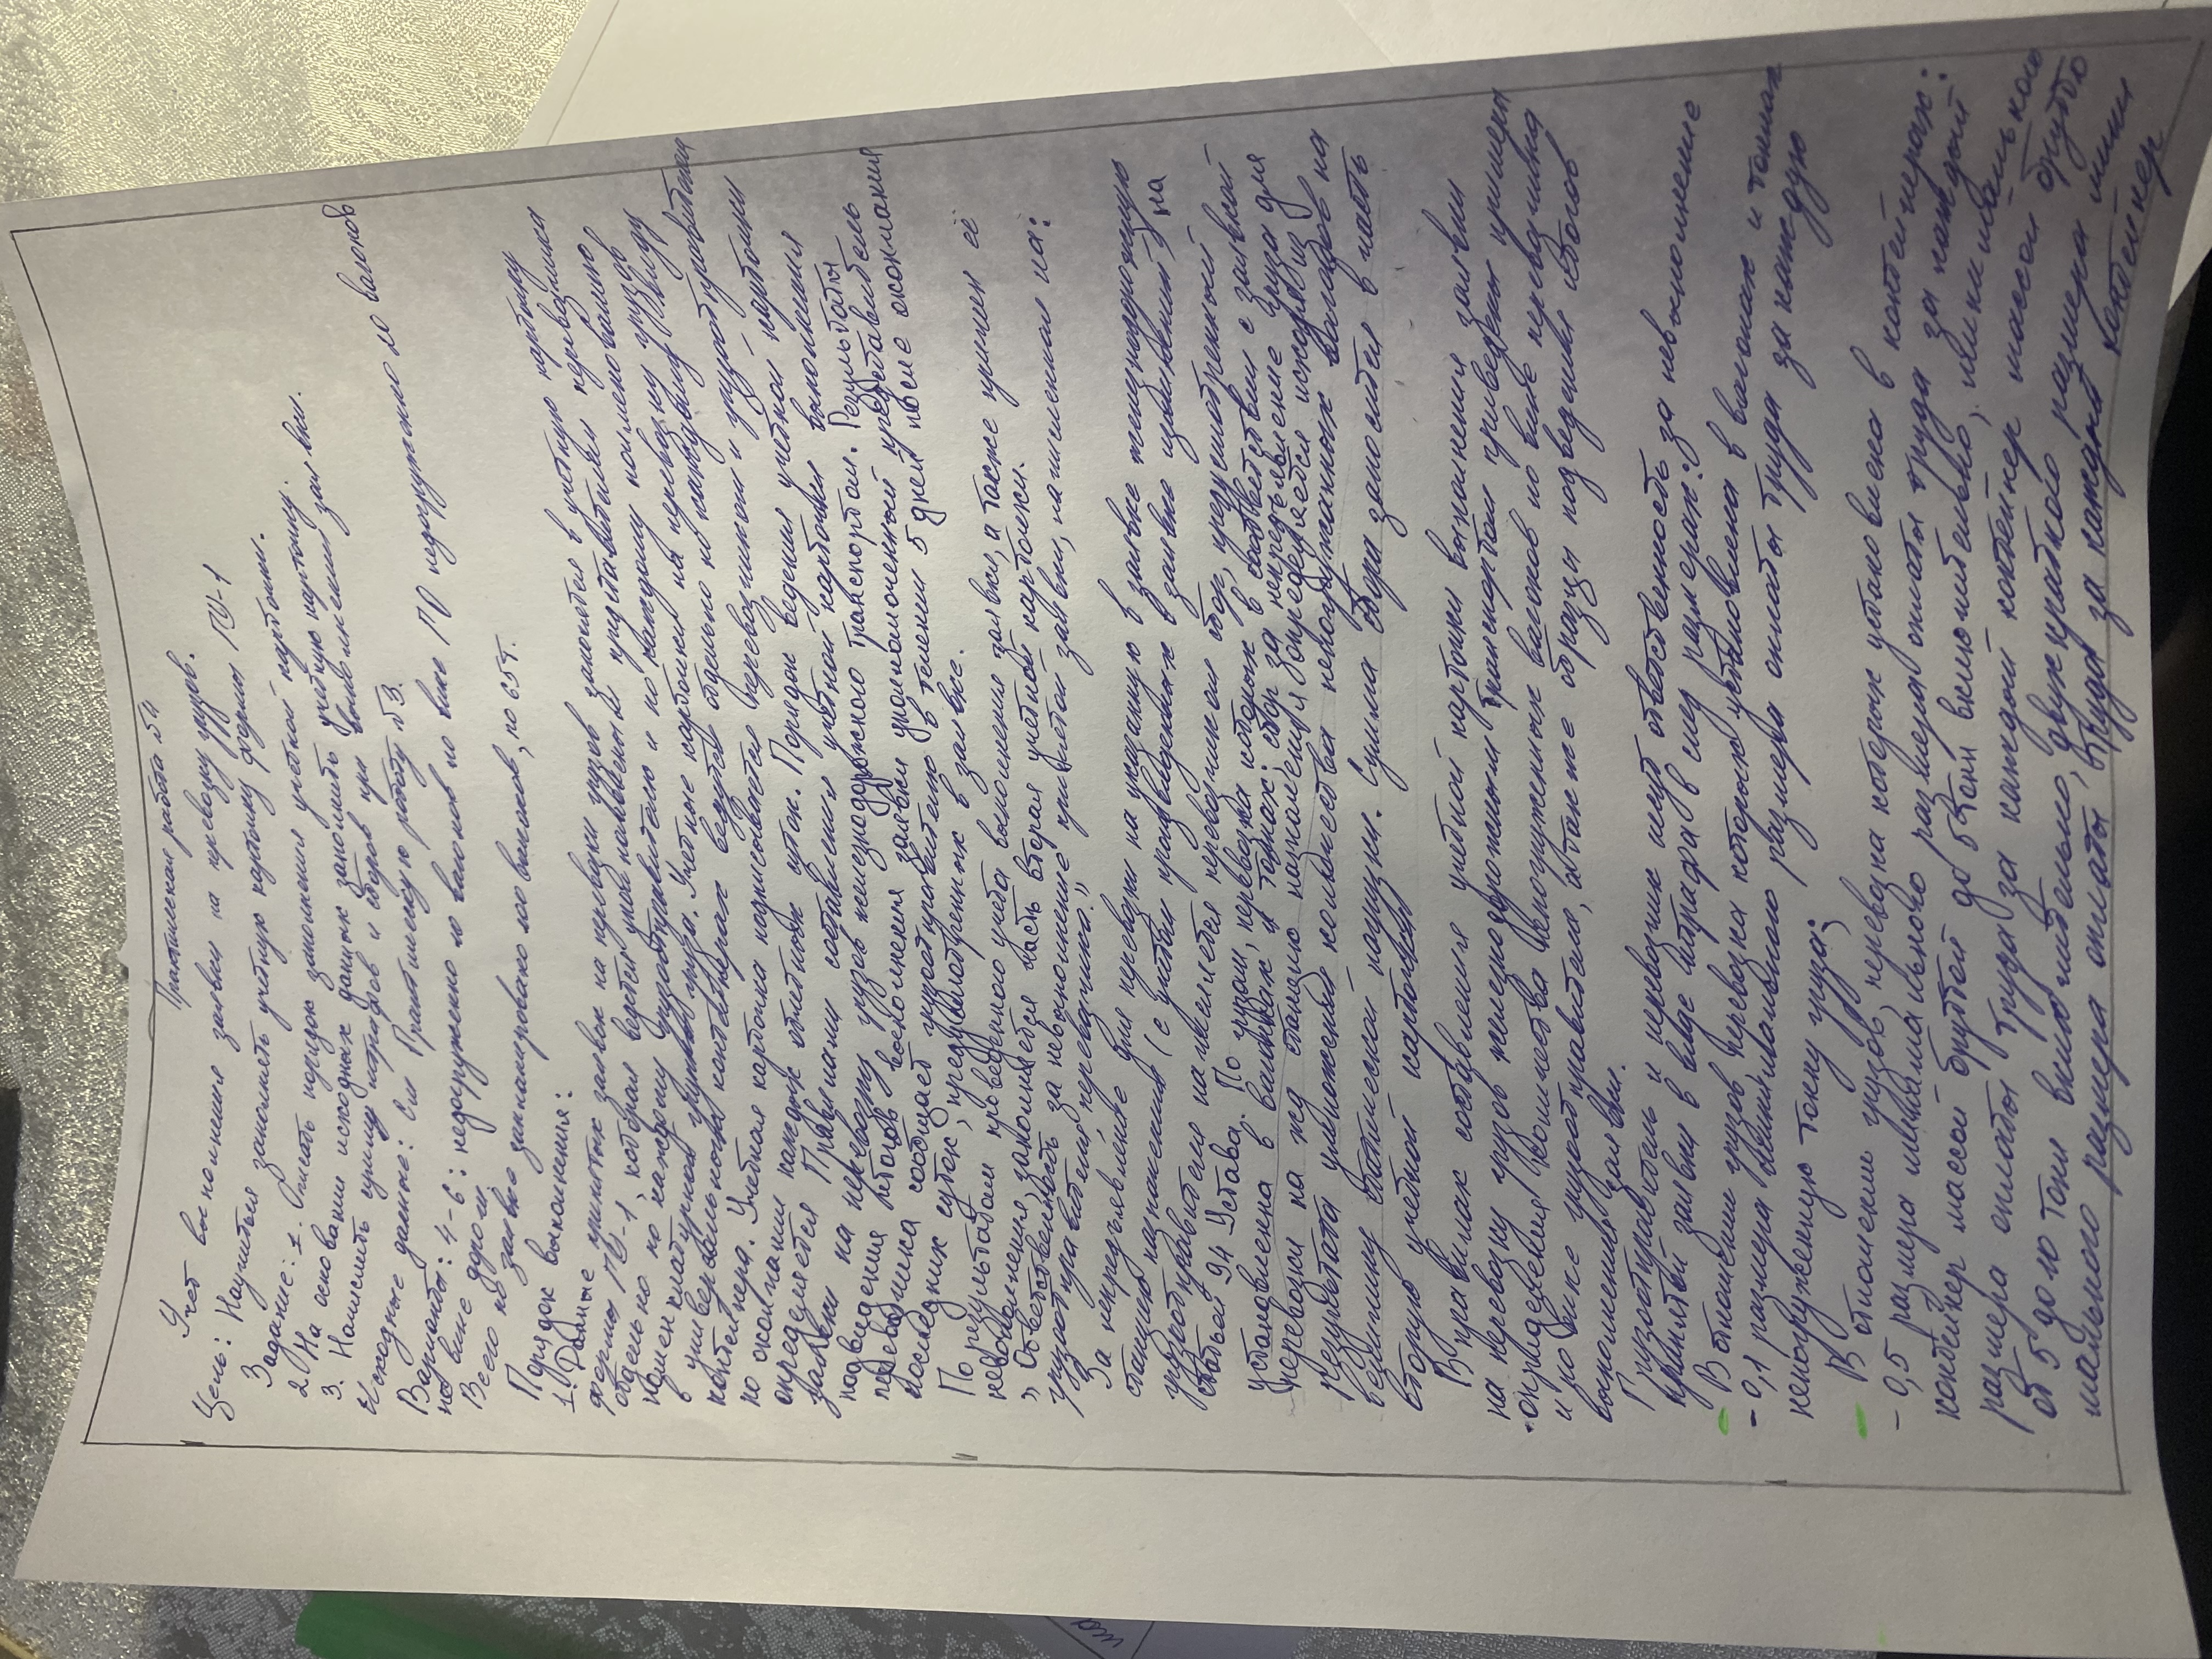 Практическая работа №4
Учет выполнения заявки на перевозку грузов.
Цель: Научиться заполнять учетную карточку формы ГУ-1
Задание: 1. Описать порядок заполнения учетной карточки.
2. На основании исходных данных заполнить учетную карточку.
3. Начислить сумму штрафов и сборов при выполнении заявки.
Исходные данные: См Практическую работу №3.
Варианты: 4-6: недогружено 10 вагонов по вине ГО недопущено 20 вагонов
по вине дороги.
Всего по заявке запланировано 100 вагонов, по 65т.
Порядок выполнения:
1. Данные принятых заявок на перевозки грузов заносятся в учетную карточку
формы ГУ-1, которая ведется уполномоченным представителем перевозчика
отдельно по каждому грузоотправителю и по каждому наименованию
номенклатурной группы груза. Учетные карточки на перевозку грузов
в универсальных контейнерах ведутся отдельно по каждому виду
контейнера. Учетная карточка подписывается перевозчиком и грузоотправителем
по окончании каждых отчетных суток. Порядок ведения учетной карточки
определяется Правилами составления учетной карточки выполнения
заявки на перевозку грузов железнодорожного транспортом. Результаты
подведения итогов выполнения заявки уполномоченный представитель
перевозчика сообщает грузоотправителю в течении 5 дней после окончания
последних суток, предусмотренных в заявке.
По результатам проведенного учета выполнения заявки, а также причин её
невыполнения, заполняется часть вторая учетной карточки.
„Ответственность за невыполнение принятой заявки, начисленная на:
грузоотправителя, перевозчика."
За непредъявление для перевозки на указанную в заявке железнодорожную
станцию назначения (с учетом произведенных в заявке изменений) на
грузоотправителя начисляется перевозчиком сбор, предусмотренный
статьей 94 Устава. По грузам, перевозка которых в соответствии с заявкой
установлена в вагонах и тоннах: сбор за непредъявление груза для
перевозки на жд станцию назначения определяется исходя из
результата умножения количества непогруженных вагонов на
величину статической нагрузки. Сумма сбора заносится в часть
вторую учетной карточки.
В правилах составления учетной карточки выполнения заявки
на перевозку грузов железнодорожным транспортом приведены примеры
определения количества непогруженных вагонов по вине перевозчика
и по вине грузоотправителя, а также образцы подведения итогов
выполнения заявки.
Грузоотправитель и перевозчик несут ответственность за невыполнение
принятой заявки в виде штрафа в след размерах:
В отношении грузов, перевозка которых установлена в вагонах и тоннах
- 0,1 размера минимального размера оплаты труда за каждую
непогруженную тонну груза;
В отношении грузов, перевозка которых установлена в контейнерах:
- 0,5 размера минимального размера оплаты труда за каждый
контейнер массой брутто до 5 тонн включительно, минимального
размера оплаты труда за каждый контейнер массой брутто
от 5 до 10 тонн включительно, двухкратного размера мини
мального размера оплаты труда за каждый контейнер